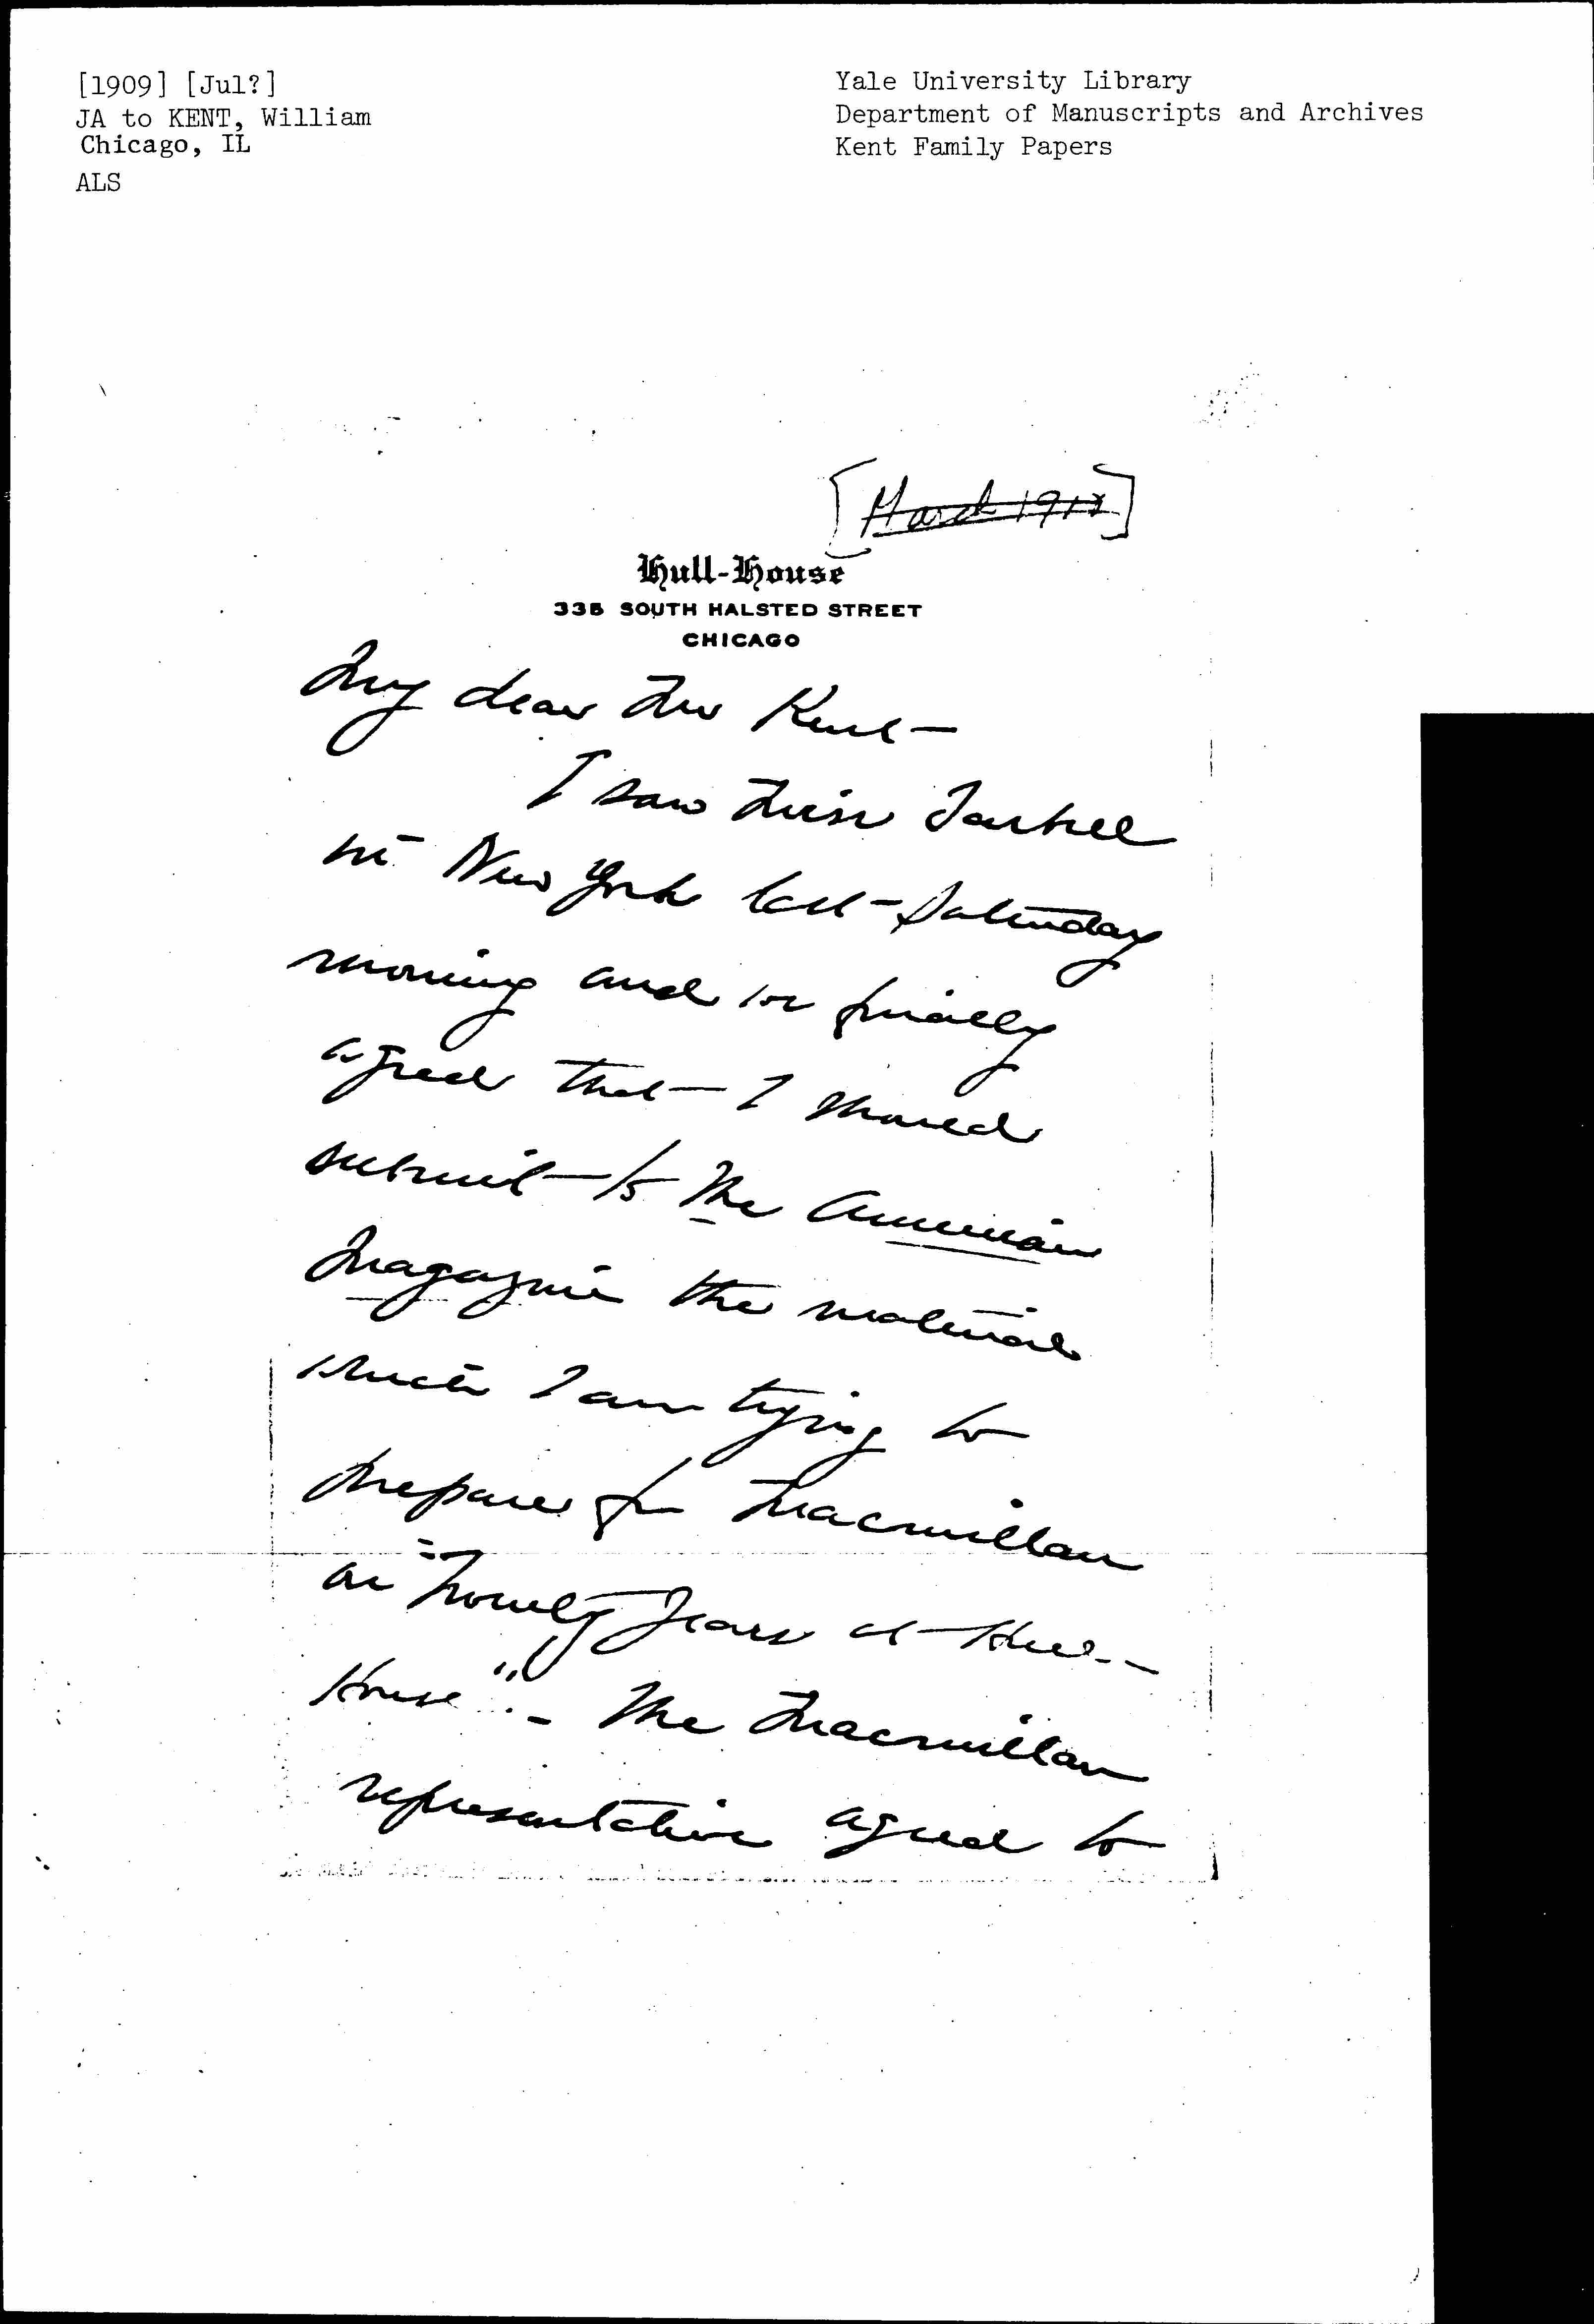 [1909] [Jul?]
JA to KENT, William
Chicago, IL
ALS
Yale University Library
Department of Manuscripts and Archives
Kent Family Papers
[March 1912]
Hull-House
335 SOUTH HALSTED STREET
CHICAGO
My dear Mr Kent –
I saw Miss Tarbell
in New York last Saturday
morning and we finally
agreed that I should
submit to The American
Magazine the material
which I am trying to
prepare for Macmillan
as "Twenty Years at Hull-
House". – The Macmillan
representative agreed to